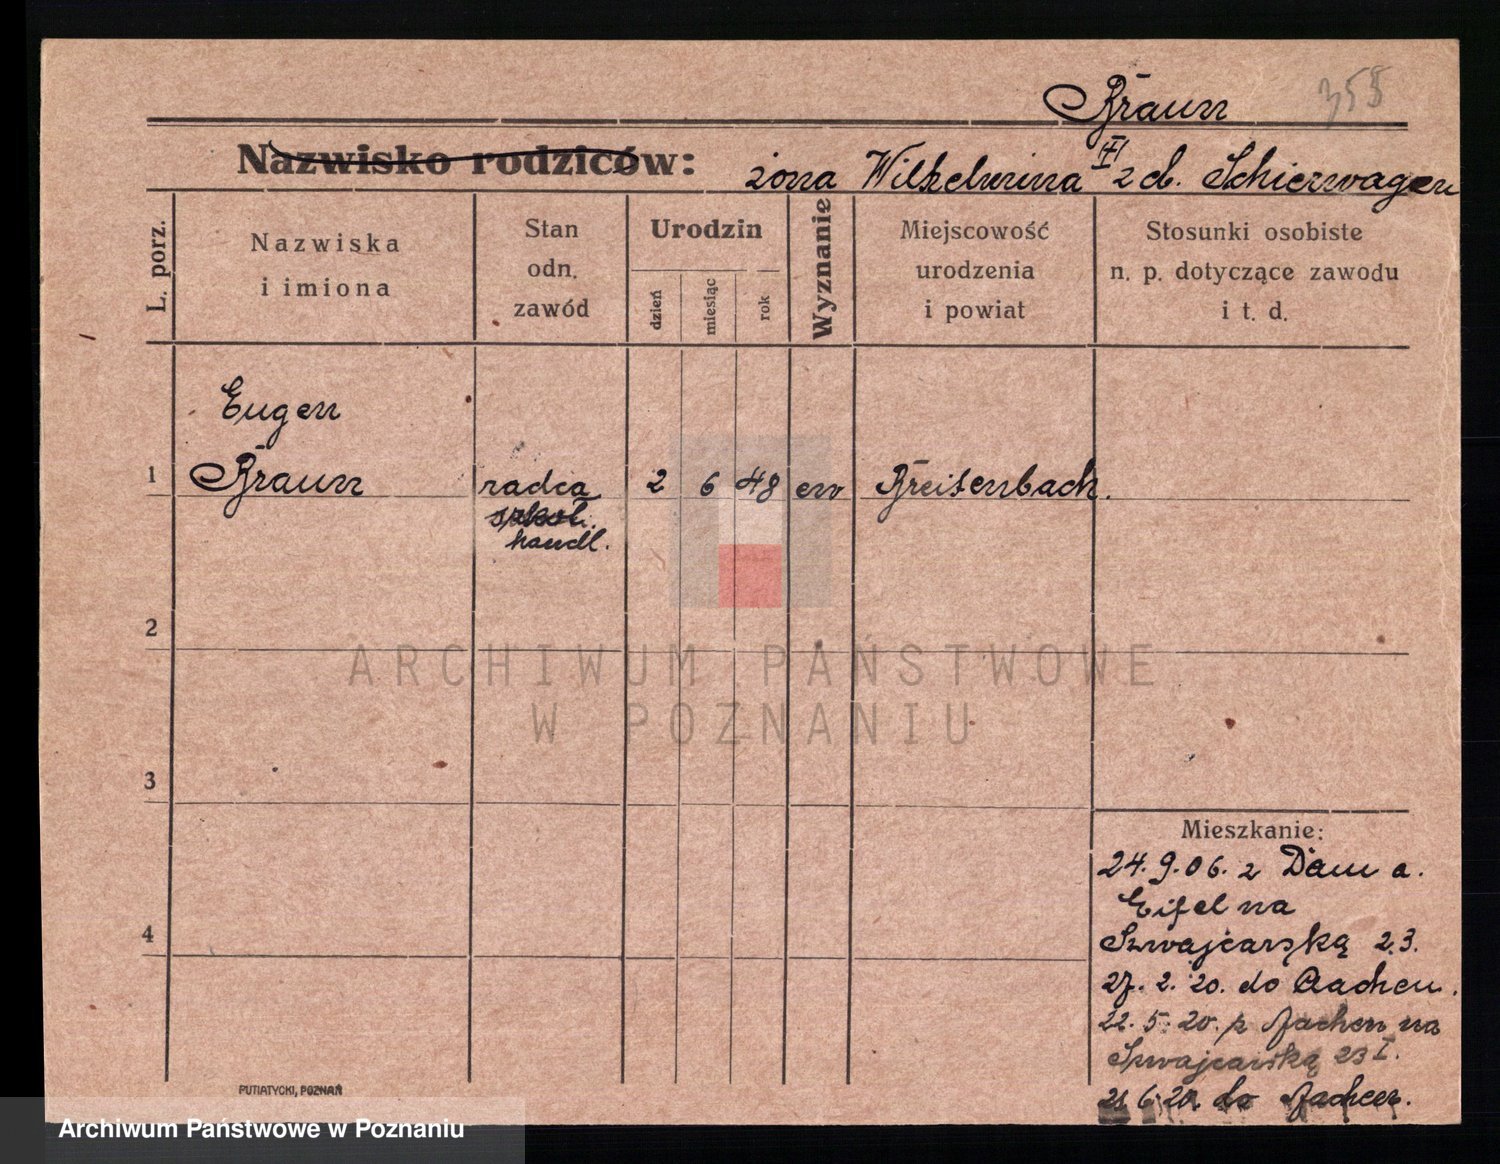 Braun
355
Nazwisko rodziców: żona Wilhelmina z d. Schierwagen
L. porz.
Nazwiska
i imiona
Stan
odn.
zawód
Urodzin
dzień
miesiąc
rok
Wyznanie
Miejscowość
urodzenia
i powiat
Stosunki osobiste
n. p. dotyczące zawodu
i t. d.
Eugen
1 Braun radca 2 6 48 ew Breisenbach.
szkol.
handl.
2
3
4
Mieszkanie:
24.9.06. z Daun a.
Eifel na
Szwajcarską 23.
27. 2. 20. do Aachen.
22. 5. 20. z Aachen na
Szwajcarską 23 I.
21 6. 20. do Aachen.
PUTIATYCKI, POZNAŃ
ARCHIWUM PAŃSTWOWE
W POZNANIU
Archiwum Państwowe w Poznaniu